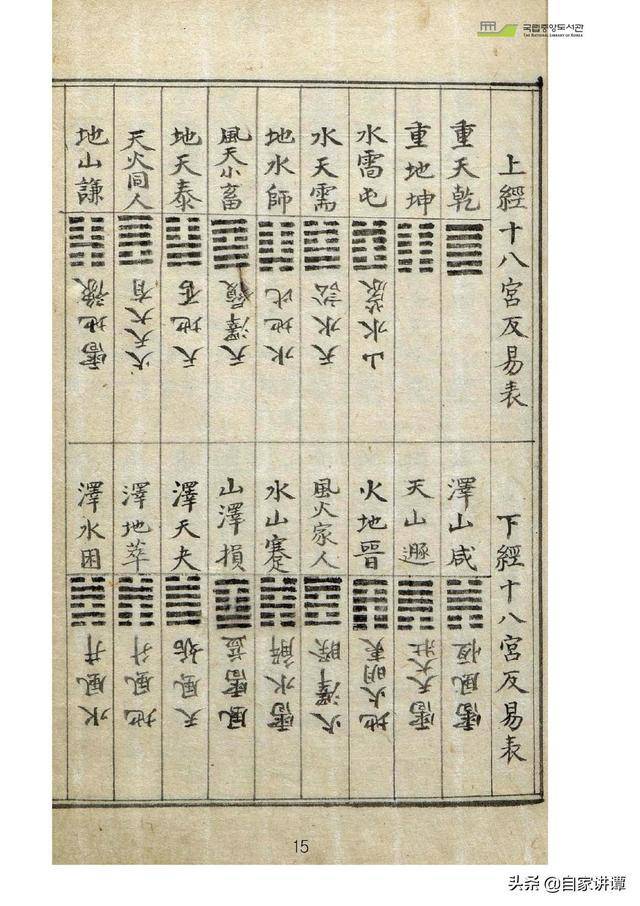 국립중앙도서관
THE NATIONAL LIBRARY OF KOREA
上經十八宮反易表
重天乾
重地坤
水雷屯
山水蒙
水天需
天水訟
地水師
水地比
風天小畜
天澤履
地天泰
天地否
天火同人
火天大有
地山謙
雷地豫
下經十八宮反易表
澤山咸
雷風恆
天山遯
雷天大壯
火地晉
地火明夷
風火家人
火澤睽
水山蹇
雷水解
山澤損
風雷益
澤天夬
天風姤
澤地萃
地風升
澤水困
水風井
15
头条 @自家讲谭